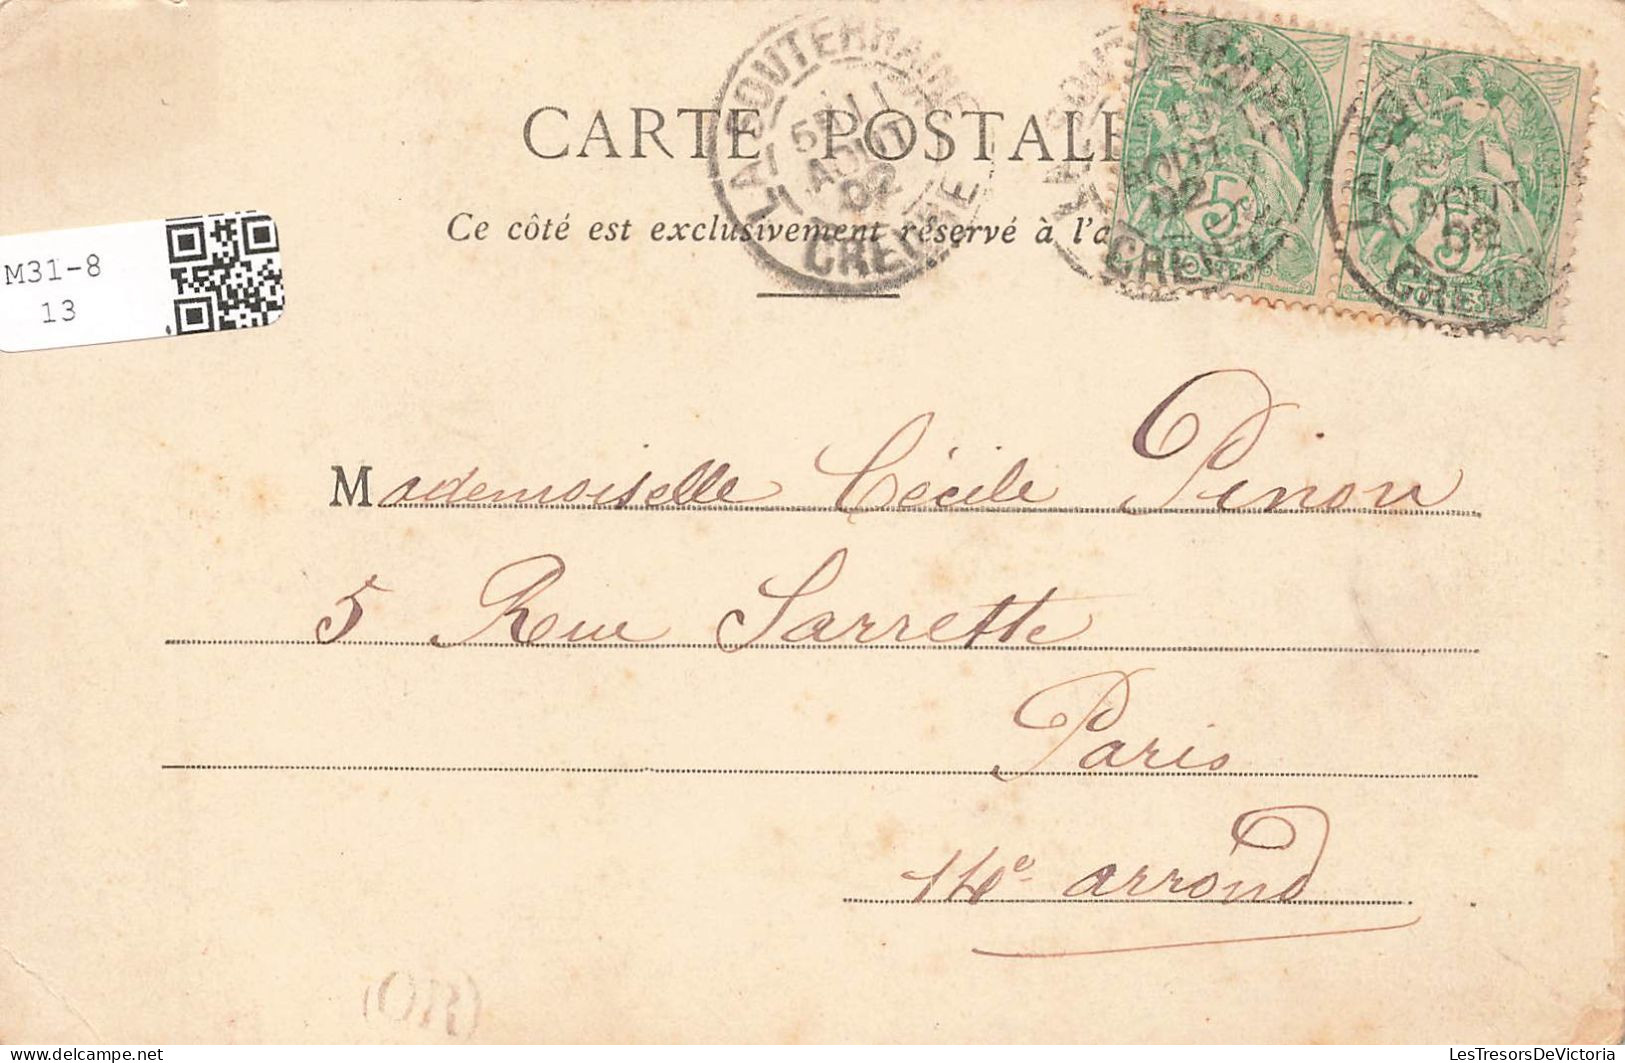 CARTE POSTALE
LA SOUTERRAINE
5E / 11
AOUT
02
CREUSE
Ce côté est exclusivement réservé à l'a
M31-8
13
5
5
Mademoiselle Cécile Pinon
5 Rue Sarrette
Paris
14e arrond
(OR)
delcampe.net
LesTresorsDeVictoria